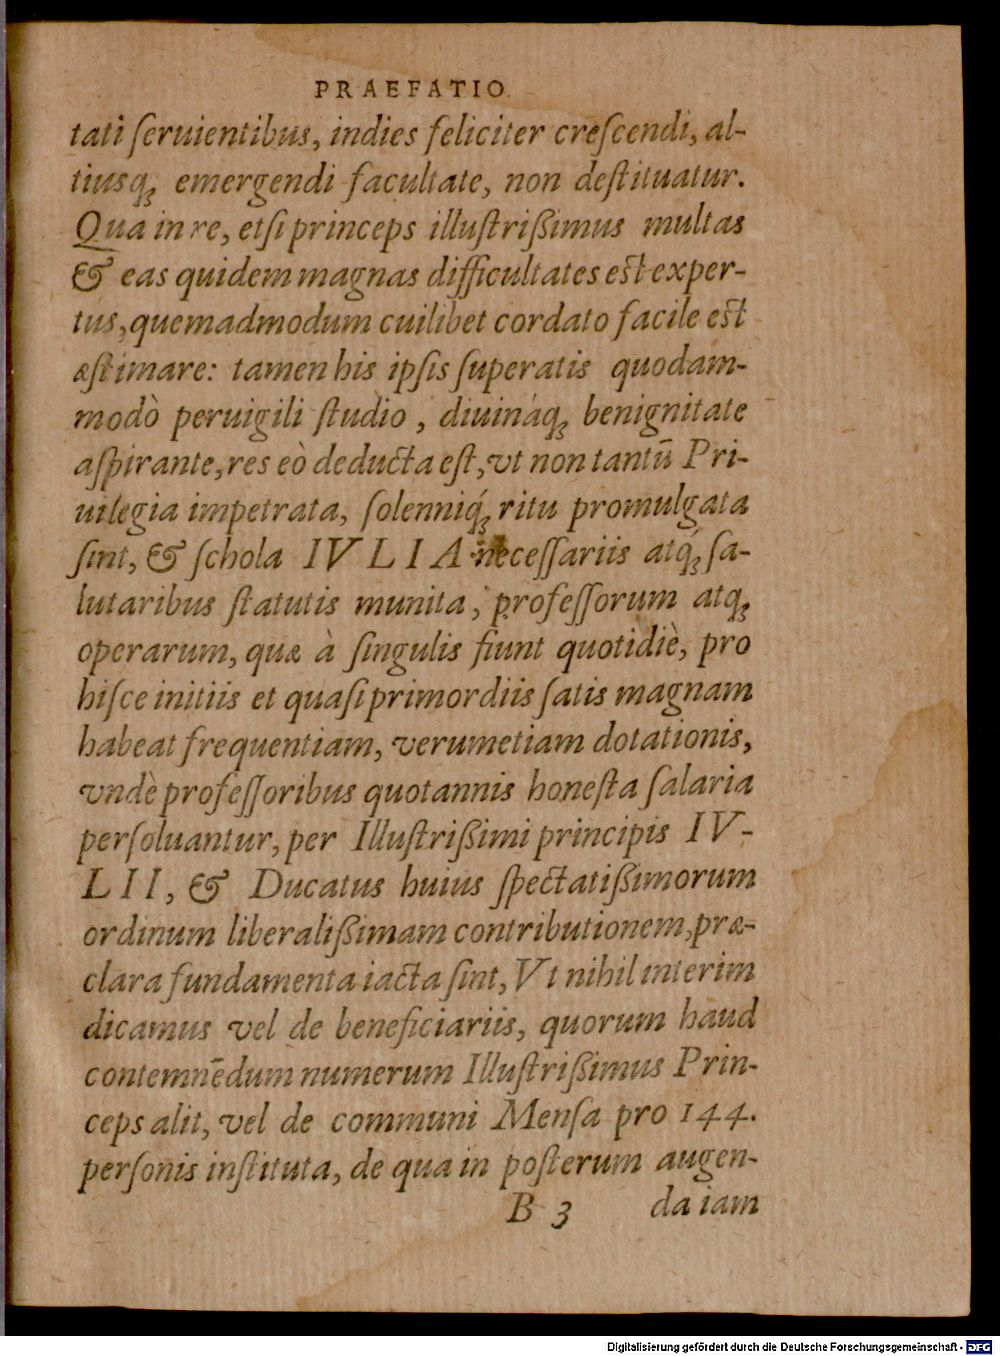 PRAEFATIO.
tati ſeruientibus, indies feliciter creſcendi, al-
tiusq́ꝫ emergendi facultate, non deſtituatur.
Qua in re, etſi princeps illuſtrißimus multas
& eas quidem magnas difficultates est exper-
tus, quemadmodum cuilibet cordato facile est
æſtimare: tamen his ipſis ſuperatis quodam-
modò peruigili ſtudio, diuináqꝫ benignitate
aſpirante, res eò deducta eſt, vt non tantū Pri-
uilegia impetrata, ſolenniq́ꝫ ritu promulgata
ſint, & ſchola IVLIA neceſſariis atq́ꝫ ſa-
lutaribus ſtatutis munita, profeſſorum atqꝫ
operarum, quæ à ſingulis fiunt quotidiè, pro
hiſce initiis et quaſi primordiis ſatis magnam
habeat frequentiam, verumetiam dotationis,
vndè profeſſoribus quotannis honeſta ſalaria
perſoluantur, per Illuſtrißimi principis IV-
LII, & Ducatus huius ſpectatißimorum
ordinum liberalißimam contributionem, præ-
clara fundamenta iacta ſint, Vt nihil interim
dicamus vel de beneficiariis, quorum haud
contemnēdum numerum Illuſtrißimus Prin-
ceps alit, vel de communi Menſa pro 144.
perſonis inſtituta, de qua in poſterum augen-
B 3 da iam
Digitalisierung gefördert durch die Deutsche Forschungsgemeinschaft - DFG